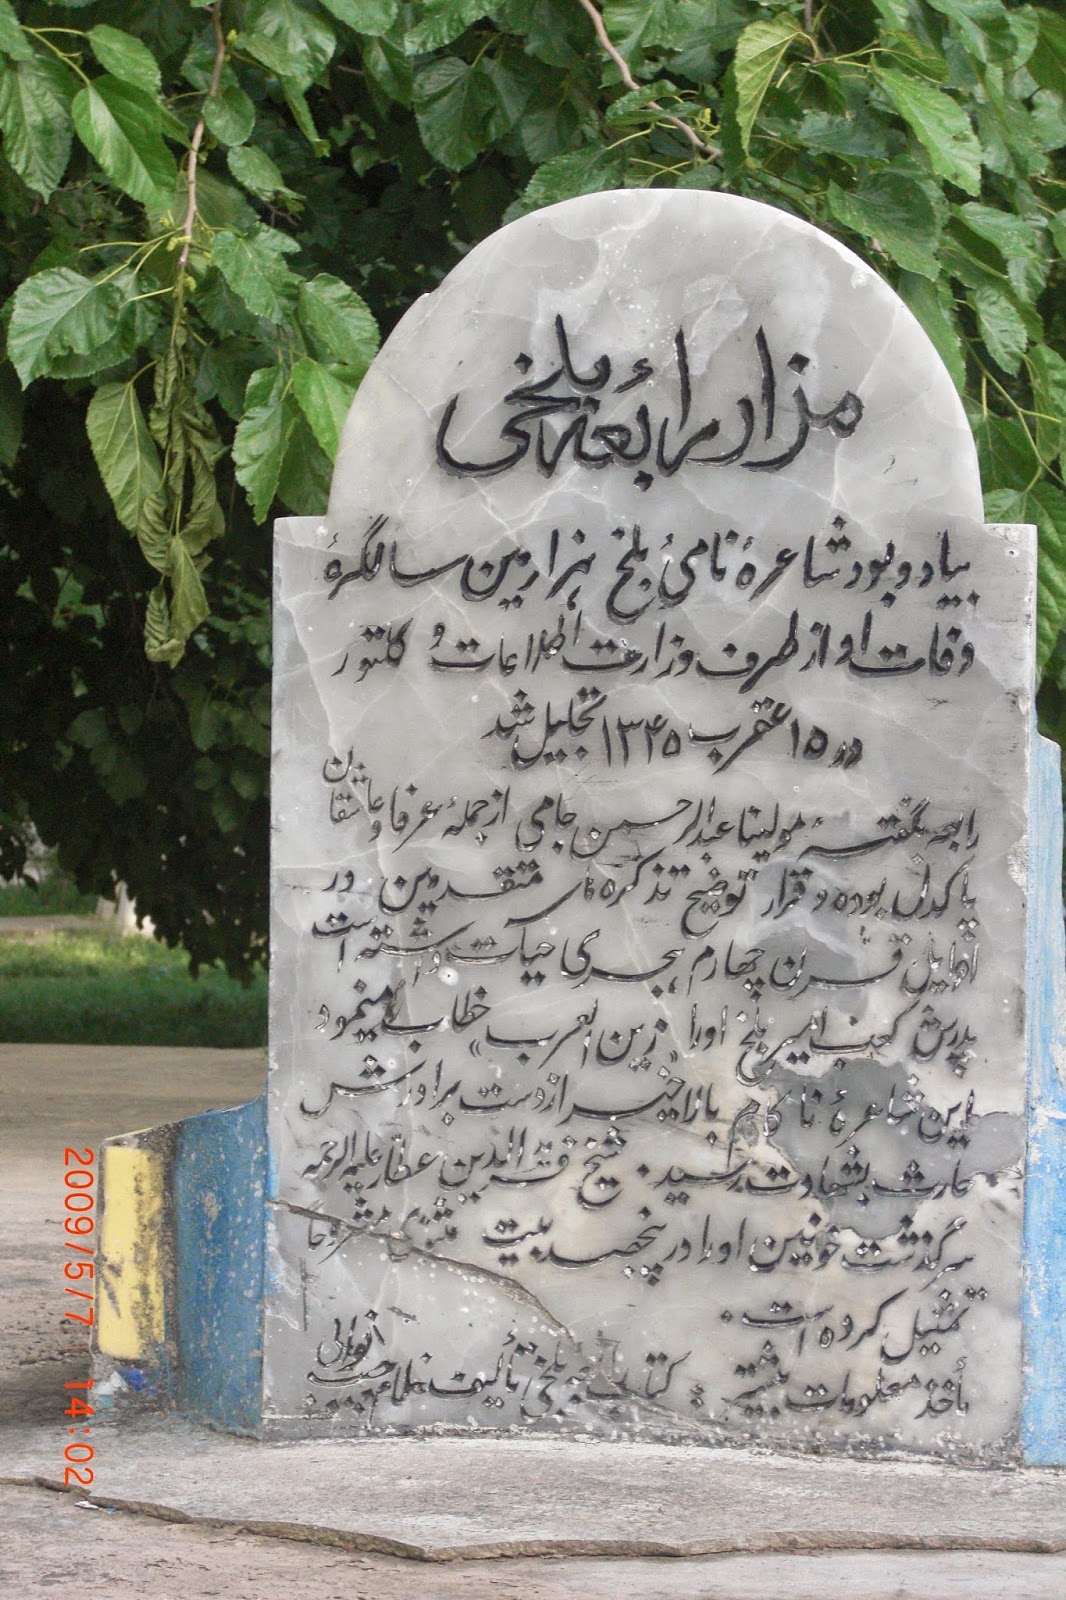 مزار رابعه بلخی
بیاد و بود شاعرهٔ نامیٔ بلخ هزارمین سالگرهٔ
وفات او از طرف وزارت اطلاعات و کلتور
در ۱۵ عقرب ۱۳۴۵ تجلیل شد
رابعه بگفتهٔ مولینا عبدالرحمن جامی از جملهٔ عرفا و عاشقان
پاکدل بوده و قرار توضیح تذکره های متقدمین در
اوایل قرن چهارم هجری حیات داشته است
پدرش کعب امیر بلخ اورا «زین العرب» خطاب مینمود
این شاعرهٔ ناکام بالاخیر از دست برادرش
حارث بشهادت رسید. شیخ فریدالدین عطار علیه الرحمه
سرگذشت خونین اورا در پنجصد بیت مثنوی مشروحاً
تمثیل کرده است.
مأخذ معلومات بیشتر: کتاب رابعه بلخی تألیف غلام حبیب نوابی
2009/5/7 14:02